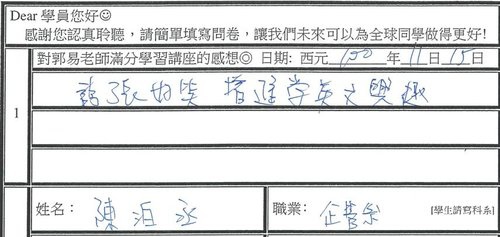 Dear 學員您好☺
感謝您認真聆聽，請簡單填寫問卷，讓我們未來可以為全球同學做得更好!
1
對郭易老師滿分學習講座的感想◎ 日期: 西元 100 年 11 日 15 日
誇張搞笑 增進学英文興趣
姓名： 陳泊丞 職業： 企管系 [學生請寫科系]